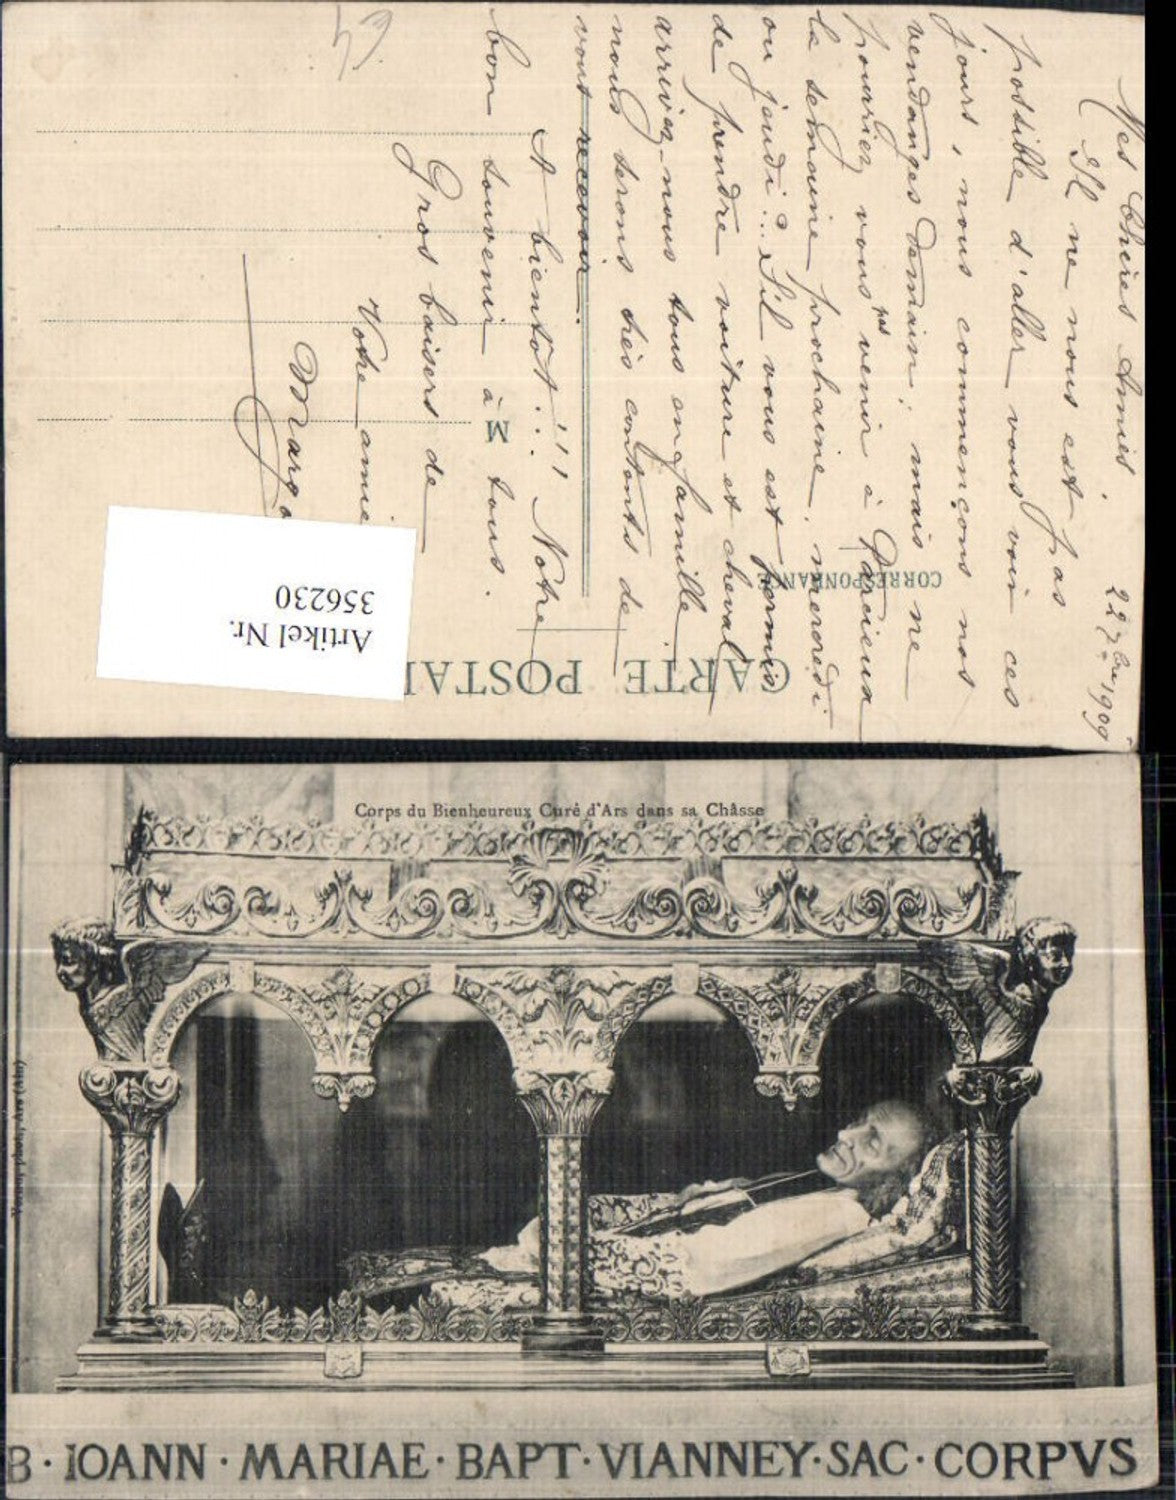 22 7bre 1909
Mes Chères Amies,
Il ne nous est pas
possible d'aller vous voir ces
jours, nous commençons nos
vendanges demain; mais ne
pourriez vous pas venir à Parcieux
la semaine prochaine, mercredi
ou jeudi?.. S'il vous est permis
de prendre voiture et cheval
arrivez-nous tous en famille
nous serons très contents de
vous recevoir.
A bientôt!!! Notre
bon souvenir à tous.
Gros baisers de
Votre amie
CARTE POSTAL
CORRESPONDANCE
M
Artikel Nr.
356230
Corps du Bienheureux Curé d'Ars dans sa Châsse
photo, Ars (Ain)
B · IOANN · MARIAE · BAPT · VIANNEY · SAC · CORPVS